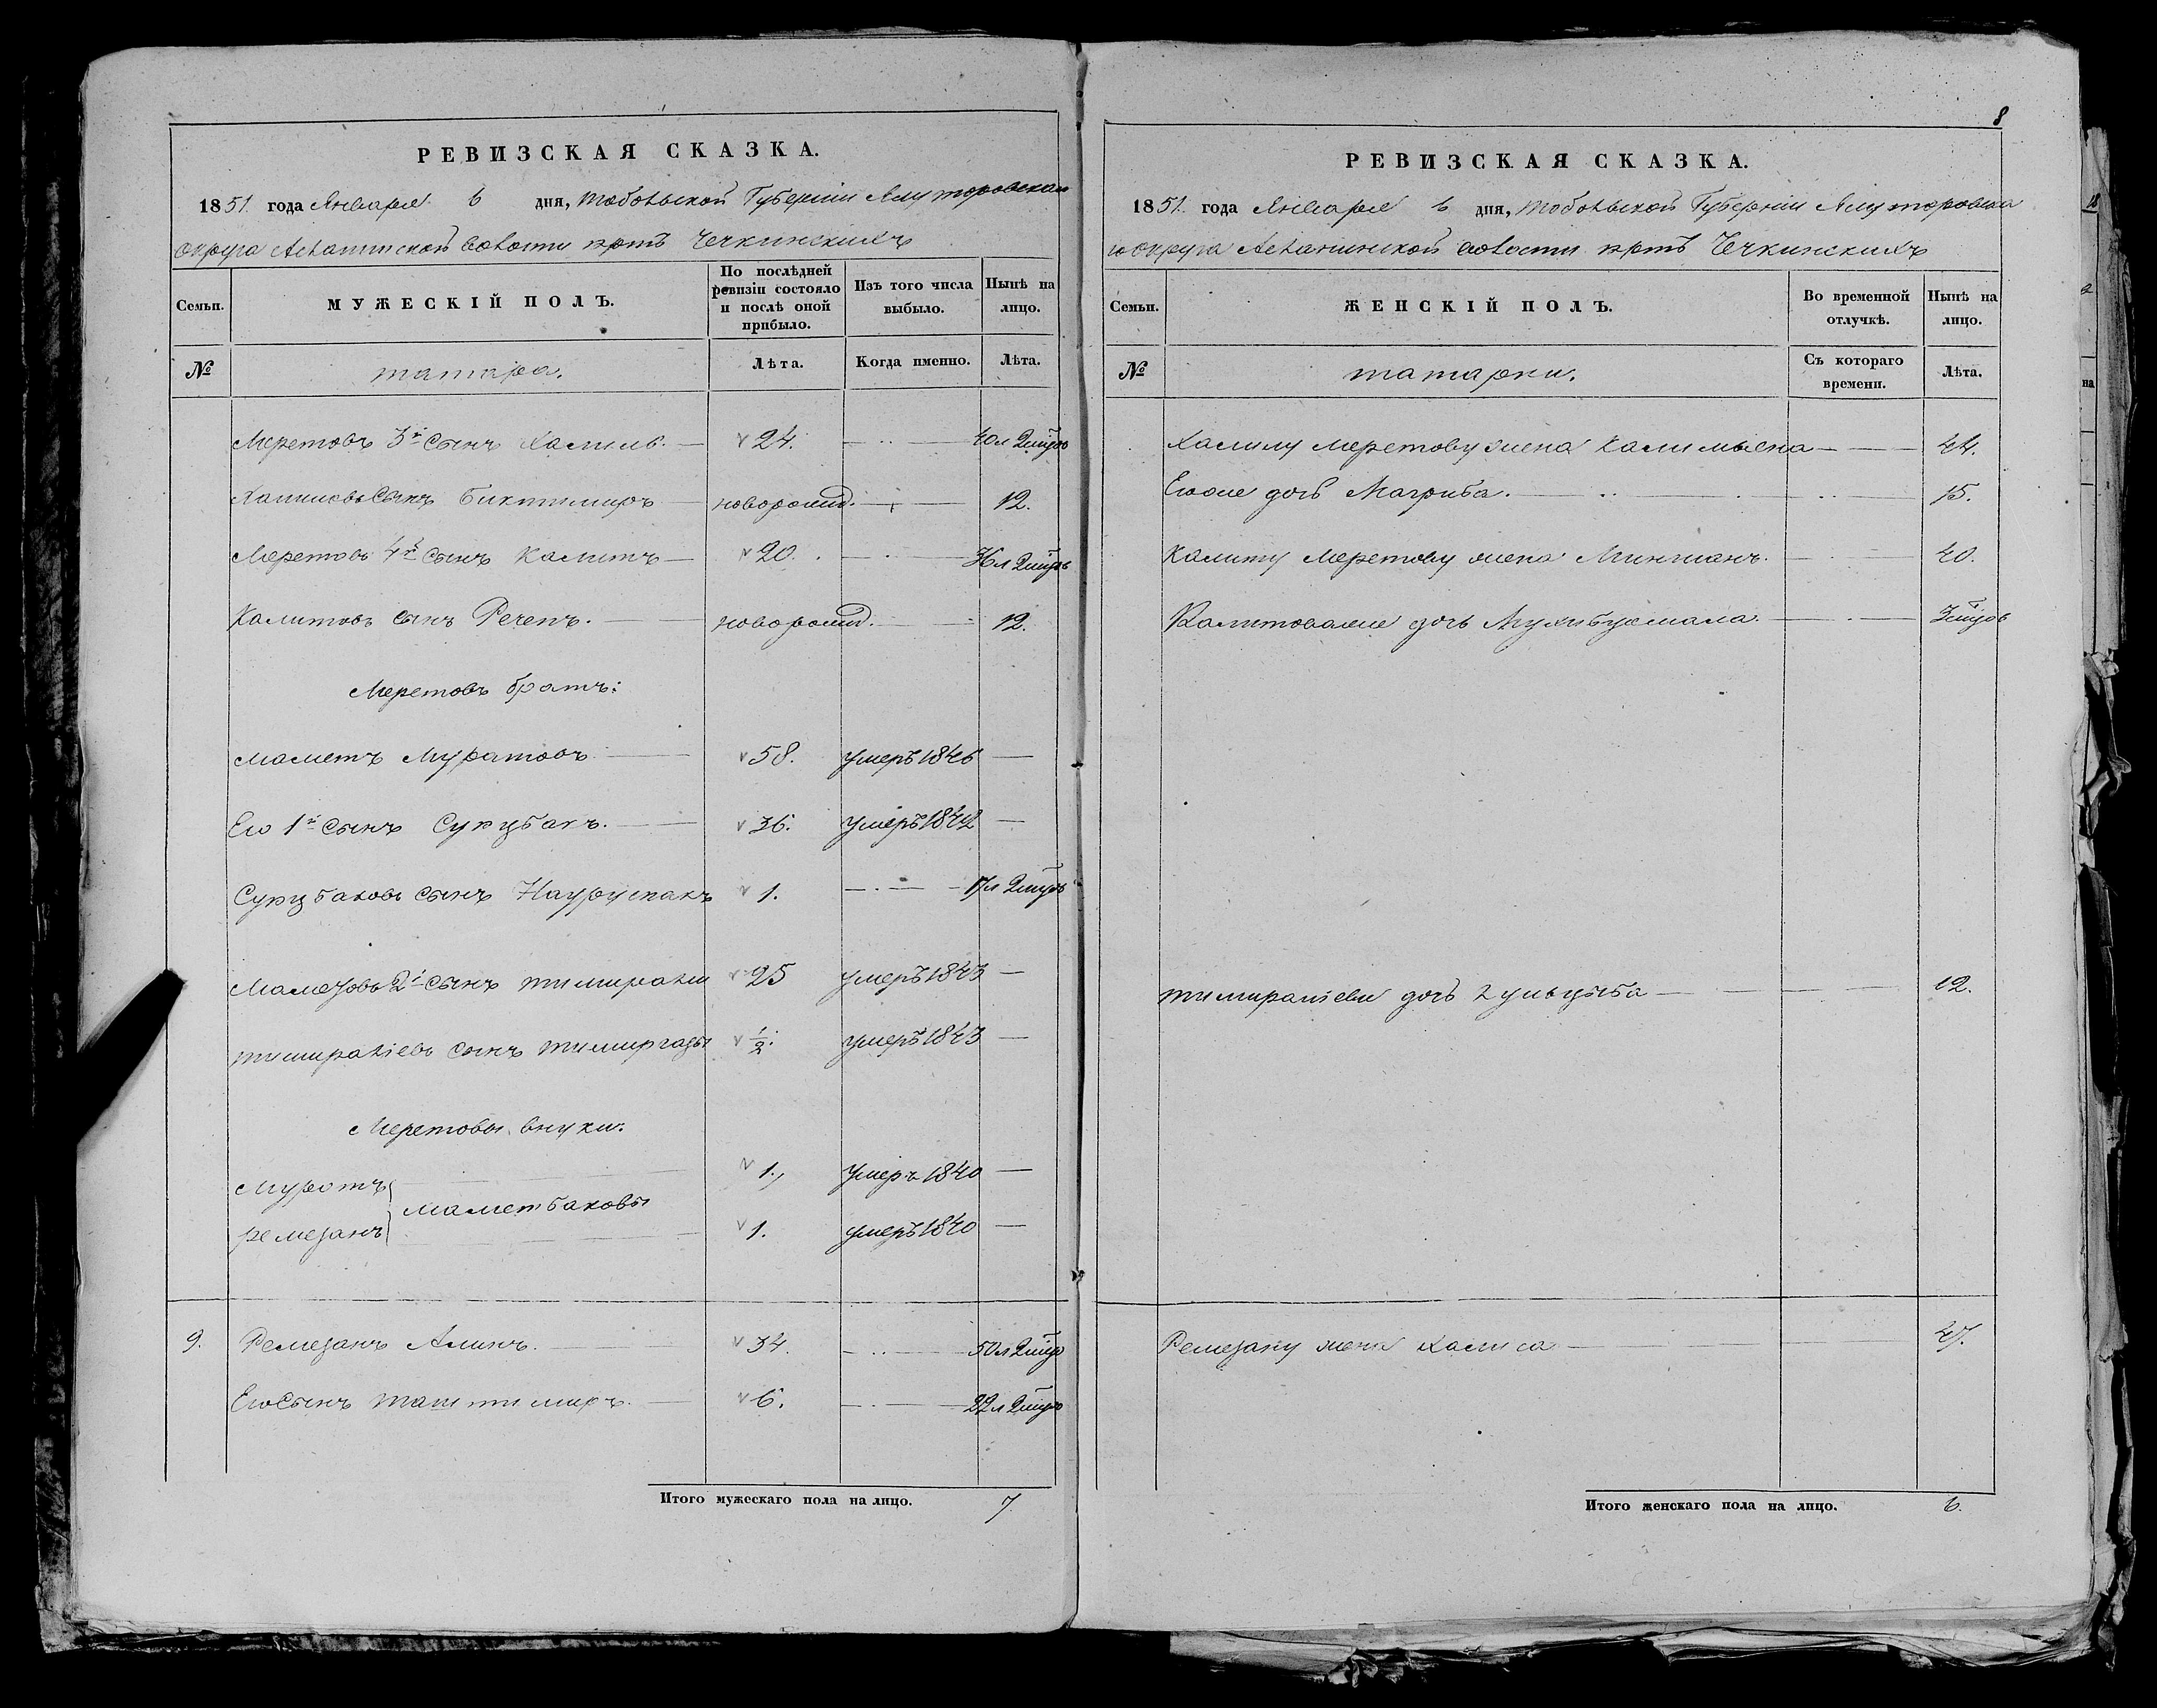 РЕВИЗСКАЯ СКАЗКА.
1851. года Января 6 дня, Тобольской Губерніи Ялуторовскаго
округа Асланинской волости юртъ Чечкинскихъ
Семьи. МУЖЕСКІЙ ПОЛЪ. По послѣдней ревизіи состояло и послѣ оной прибыло. Изъ того числа выбыло. Нынѣ на лицо.
№ татара. Лѣта. Когда именно. Лѣта.
Меретовъ 3й сынъ Халиль. 24. 40 л 2
Халиловъ сынъ Биктимиръ новорожд. 12.
Меретовъ 4й сынъ Калитъ 20. 36 л 2
Калитовъ сынъ Речепъ. новорожд. 12.
Меретовъ братъ:
Маметъ Муратовъ 58. умеръ 1846
Его 1й сынъ 36. умеръ 1842
сынъ 1. 17 л 2
2й сынъ 25 умеръ 1843
сынъ 1/2. умеръ 1843
Меретовы внуки.
Муратъ 1., умеръ 1840
Маметбаковы
Ремезанъ 1. умеръ 1840
9. Ремезанъ Алинъ. 34. 50 л 2
Его сынъ Таштимиръ. 6. 22 л 2
Итого мужескаго пола на лицо. 7
8
РЕВИЗСКАЯ СКАЗКА.
1851. года Января 6 дня, Тобольской Губерніи Ялуторовска
го округа Асланинской волости юртъ Чечкинскихъ
Семьи. ЖЕНСКІЙ ПОЛЪ. Во временной отлучкѣ. Нынѣ на лицо.
№ татарки. Съ котораго времени. Лѣта.
Халилу Меретову жена 44.
Его же дочь Магриба. 15.
Калиту Меретову жена 40.
Калитова же дочь 3
дочь 12.
Ремезану жена Халиса 47.
Итого женскаго пола на лицо. 6.